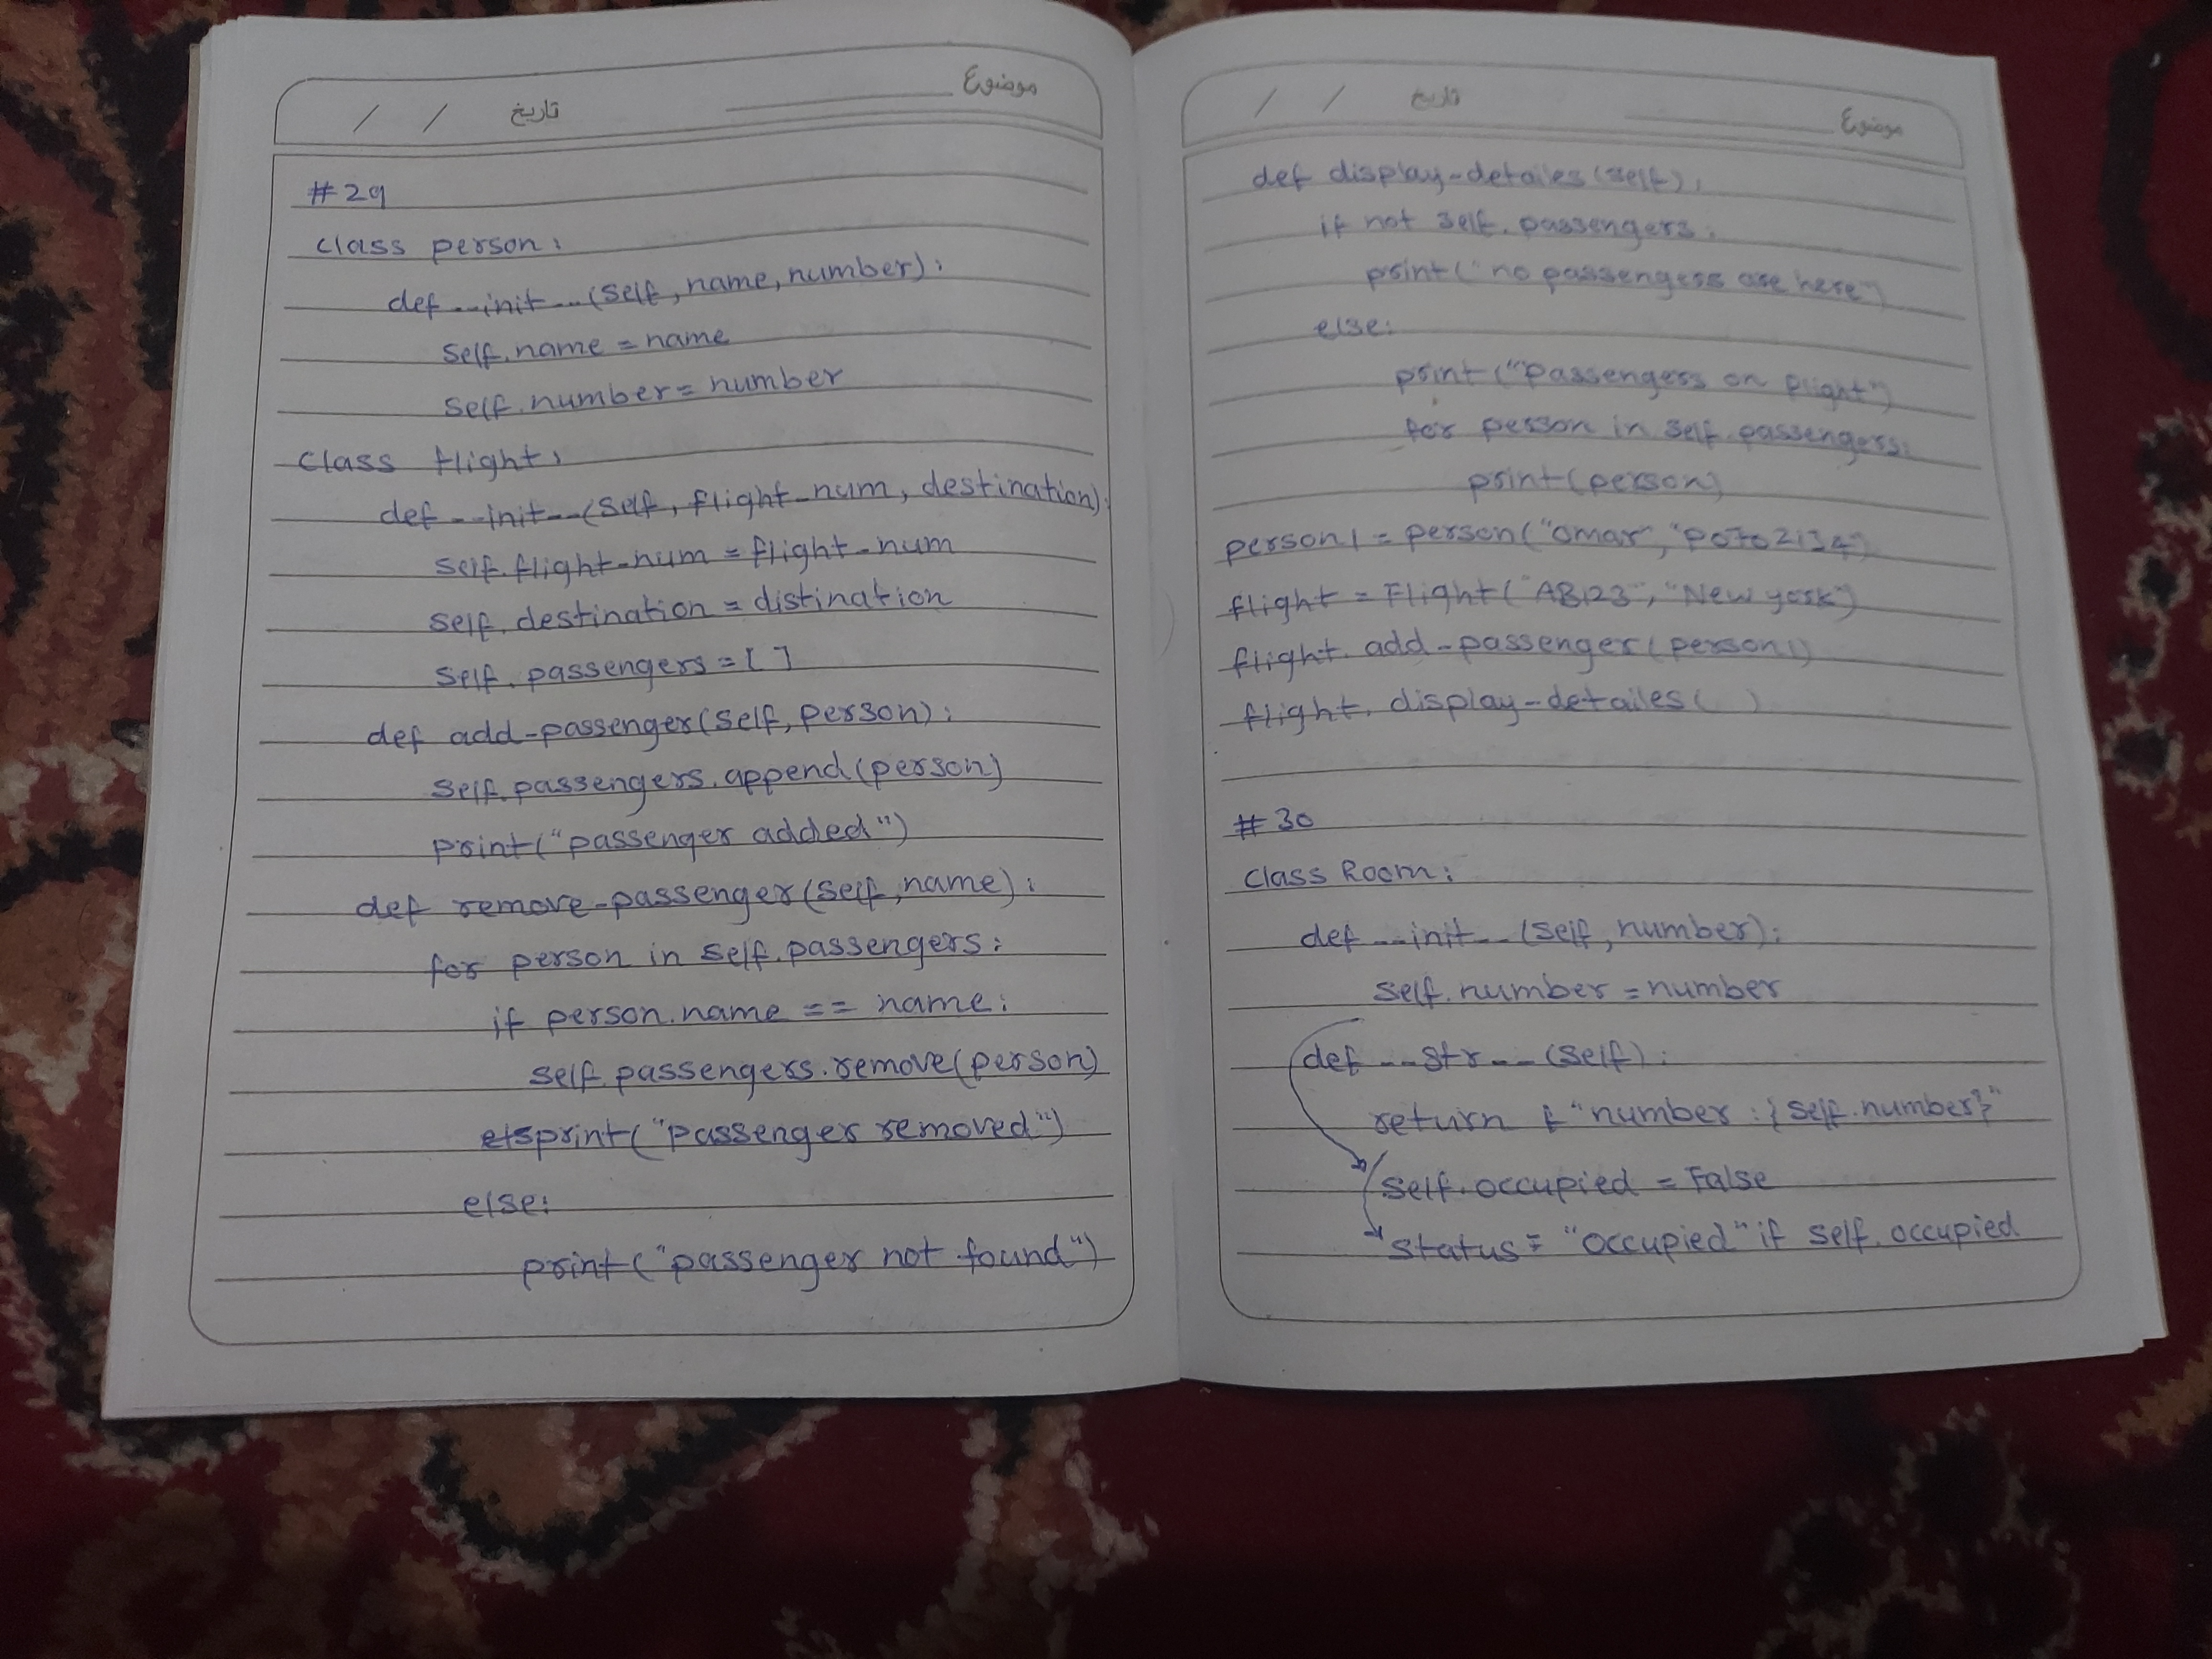 / / تاريخ
موضوع
#29
class person:
def __init__(self, name, number):
self.name = name
self.number = number
class flight:
def __init__(self, flight_num, destination):
self.flight_num = flight_num
self.destination = distination
self.passengers = [ ]
def add_passenger(self, person):
self.passengers.append(person)
print("passenger added")
def remove_passenger(self, name):
for person in self.passengers:
if person.name == name:
self.passengers.remove(person)
print("passenger removed")
else:
print("passenger not found")
/ / تاريخ
موضوع
def display_detailes(self):
if not self.passengers:
print("no passengers are here")
else:
print("passengers on plight")
for person in self.passengers:
print(person)
person1 = person("omar",
flight = Flight("AB123", "New york")
flight.add_passenger(person1)
flight.display_detailes( )
#30
class Room:
def __init__(self, number):
self.number = number
def __str__(self):
return f"number : {self.number}"
self.occupied = False
status = "occupied" if self.occupied